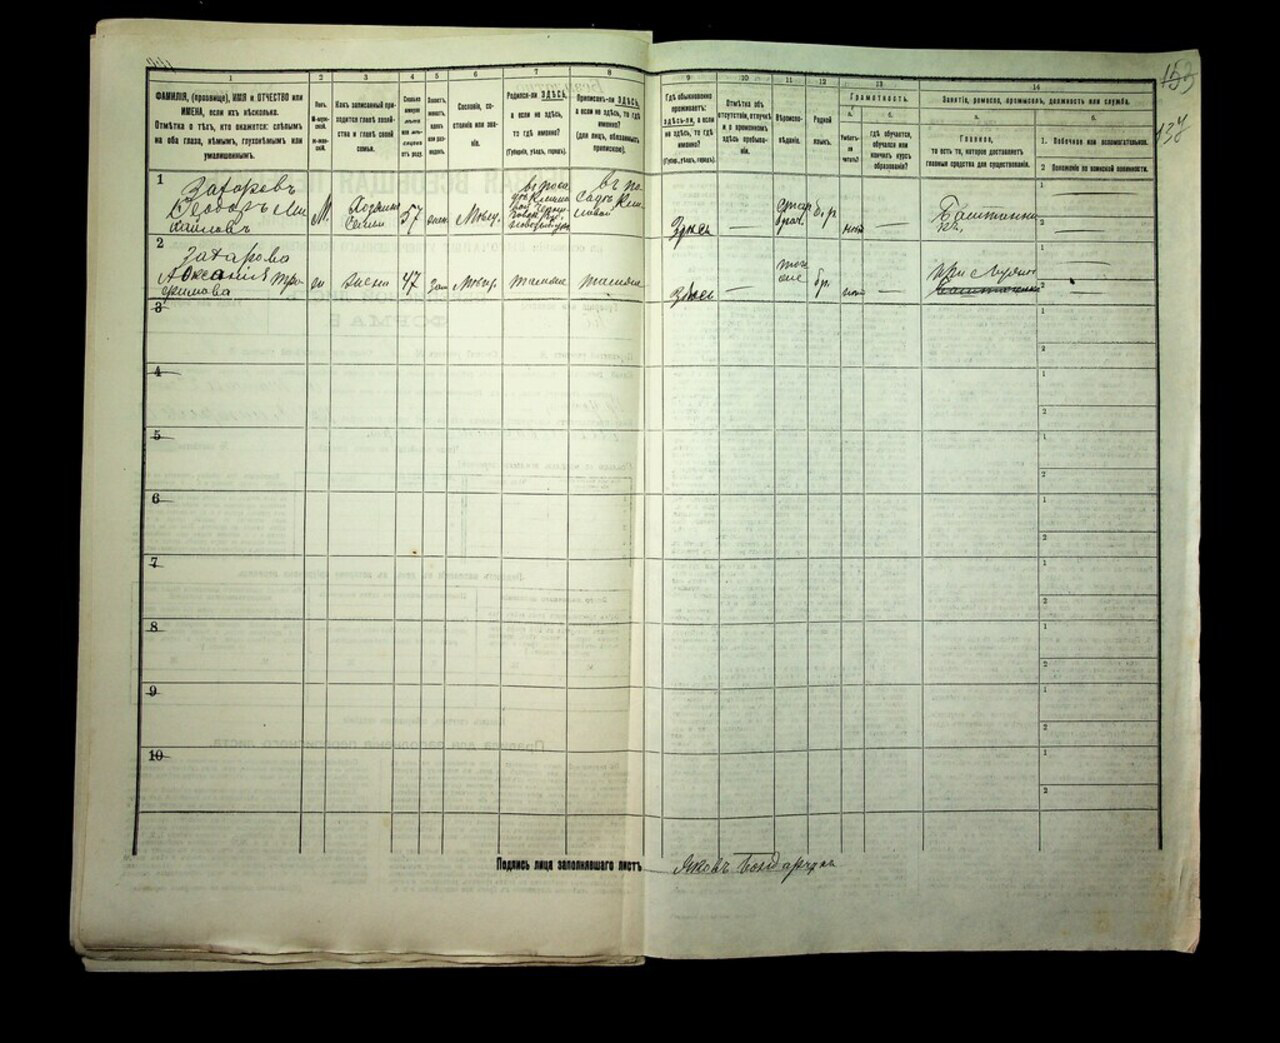 153
137
1
2
3
4
5
6
7
8
9
10
11
12
13
14
ФАМИЛІЯ, (прозвище), ИМЯ и ОТЧЕСТВО или
ИМЕНА, если ихъ нѣсколько.
Отмѣтка о тѣхъ, кто окажется: слѣпымъ
на оба глаза, нѣмымъ, глухонѣмымъ или
умалишеннымъ.
Полъ.
М-мужской.
Ж-женскій.
Какъ записанный при-
ходится главѣ хозяй-
ства и главѣ своей
семьи.
Сколько
минуло
лѣтъ
отъ роду.
Сословіе, со-
стояніе или зва-
ніе.
Родился-ли ЗДѢСЬ,
а если не здѣсь,
то гдѣ именно?
(Губернія, уѣздъ, городъ).
Приписанъ-ли ЗДѢСЬ,
а если не здѣсь, то гдѣ
именно?
(для лицъ, обязанныхъ
припискою).
Гдѣ обыкновенно
проживаетъ:
здѣсь-ли, а если
не здѣсь, то гдѣ
именно?
(Губер., уѣздъ, городъ).
Отмѣтка объ
отсутствіи, отлучкѣ
и о временномъ
здѣсь пребыва-
ніи.
Вѣроиспо-
вѣданіе.
Родной
языкъ.
Грамотность.
а.
Умѣетъ-
ли
читать?
б.
гдѣ обучается,
обучался или
кончилъ курсъ
образованія?
Занятіе, ремесло, промыселъ, должность или служба.
а.
Главное,
то есть то, которое доставляетъ
главныя средства для существованія.
б.
1. Побочное или вспомогательное.
2 Положеніе по воинской повинности.
1
Заторовъ
Феодоръ Ми-
хайловъ
М.
Хозяинъ
57
женат.
Здѣсь
—
нѣтъ
—
1
2
—
2
Затарова
Тро-
фимова
ж
жена
47
зам
тамже
тамже
Здѣсь
—
тоже
бр.
нѣт
—
при мужѣ
2
—
3
4
5
6
7
8
9
10
1
2
1
2
1
2
1
2
1
2
1
2
1
2
1
2
Подпись лица заполнявшаго листъ
Яковъ Бондарчукъ